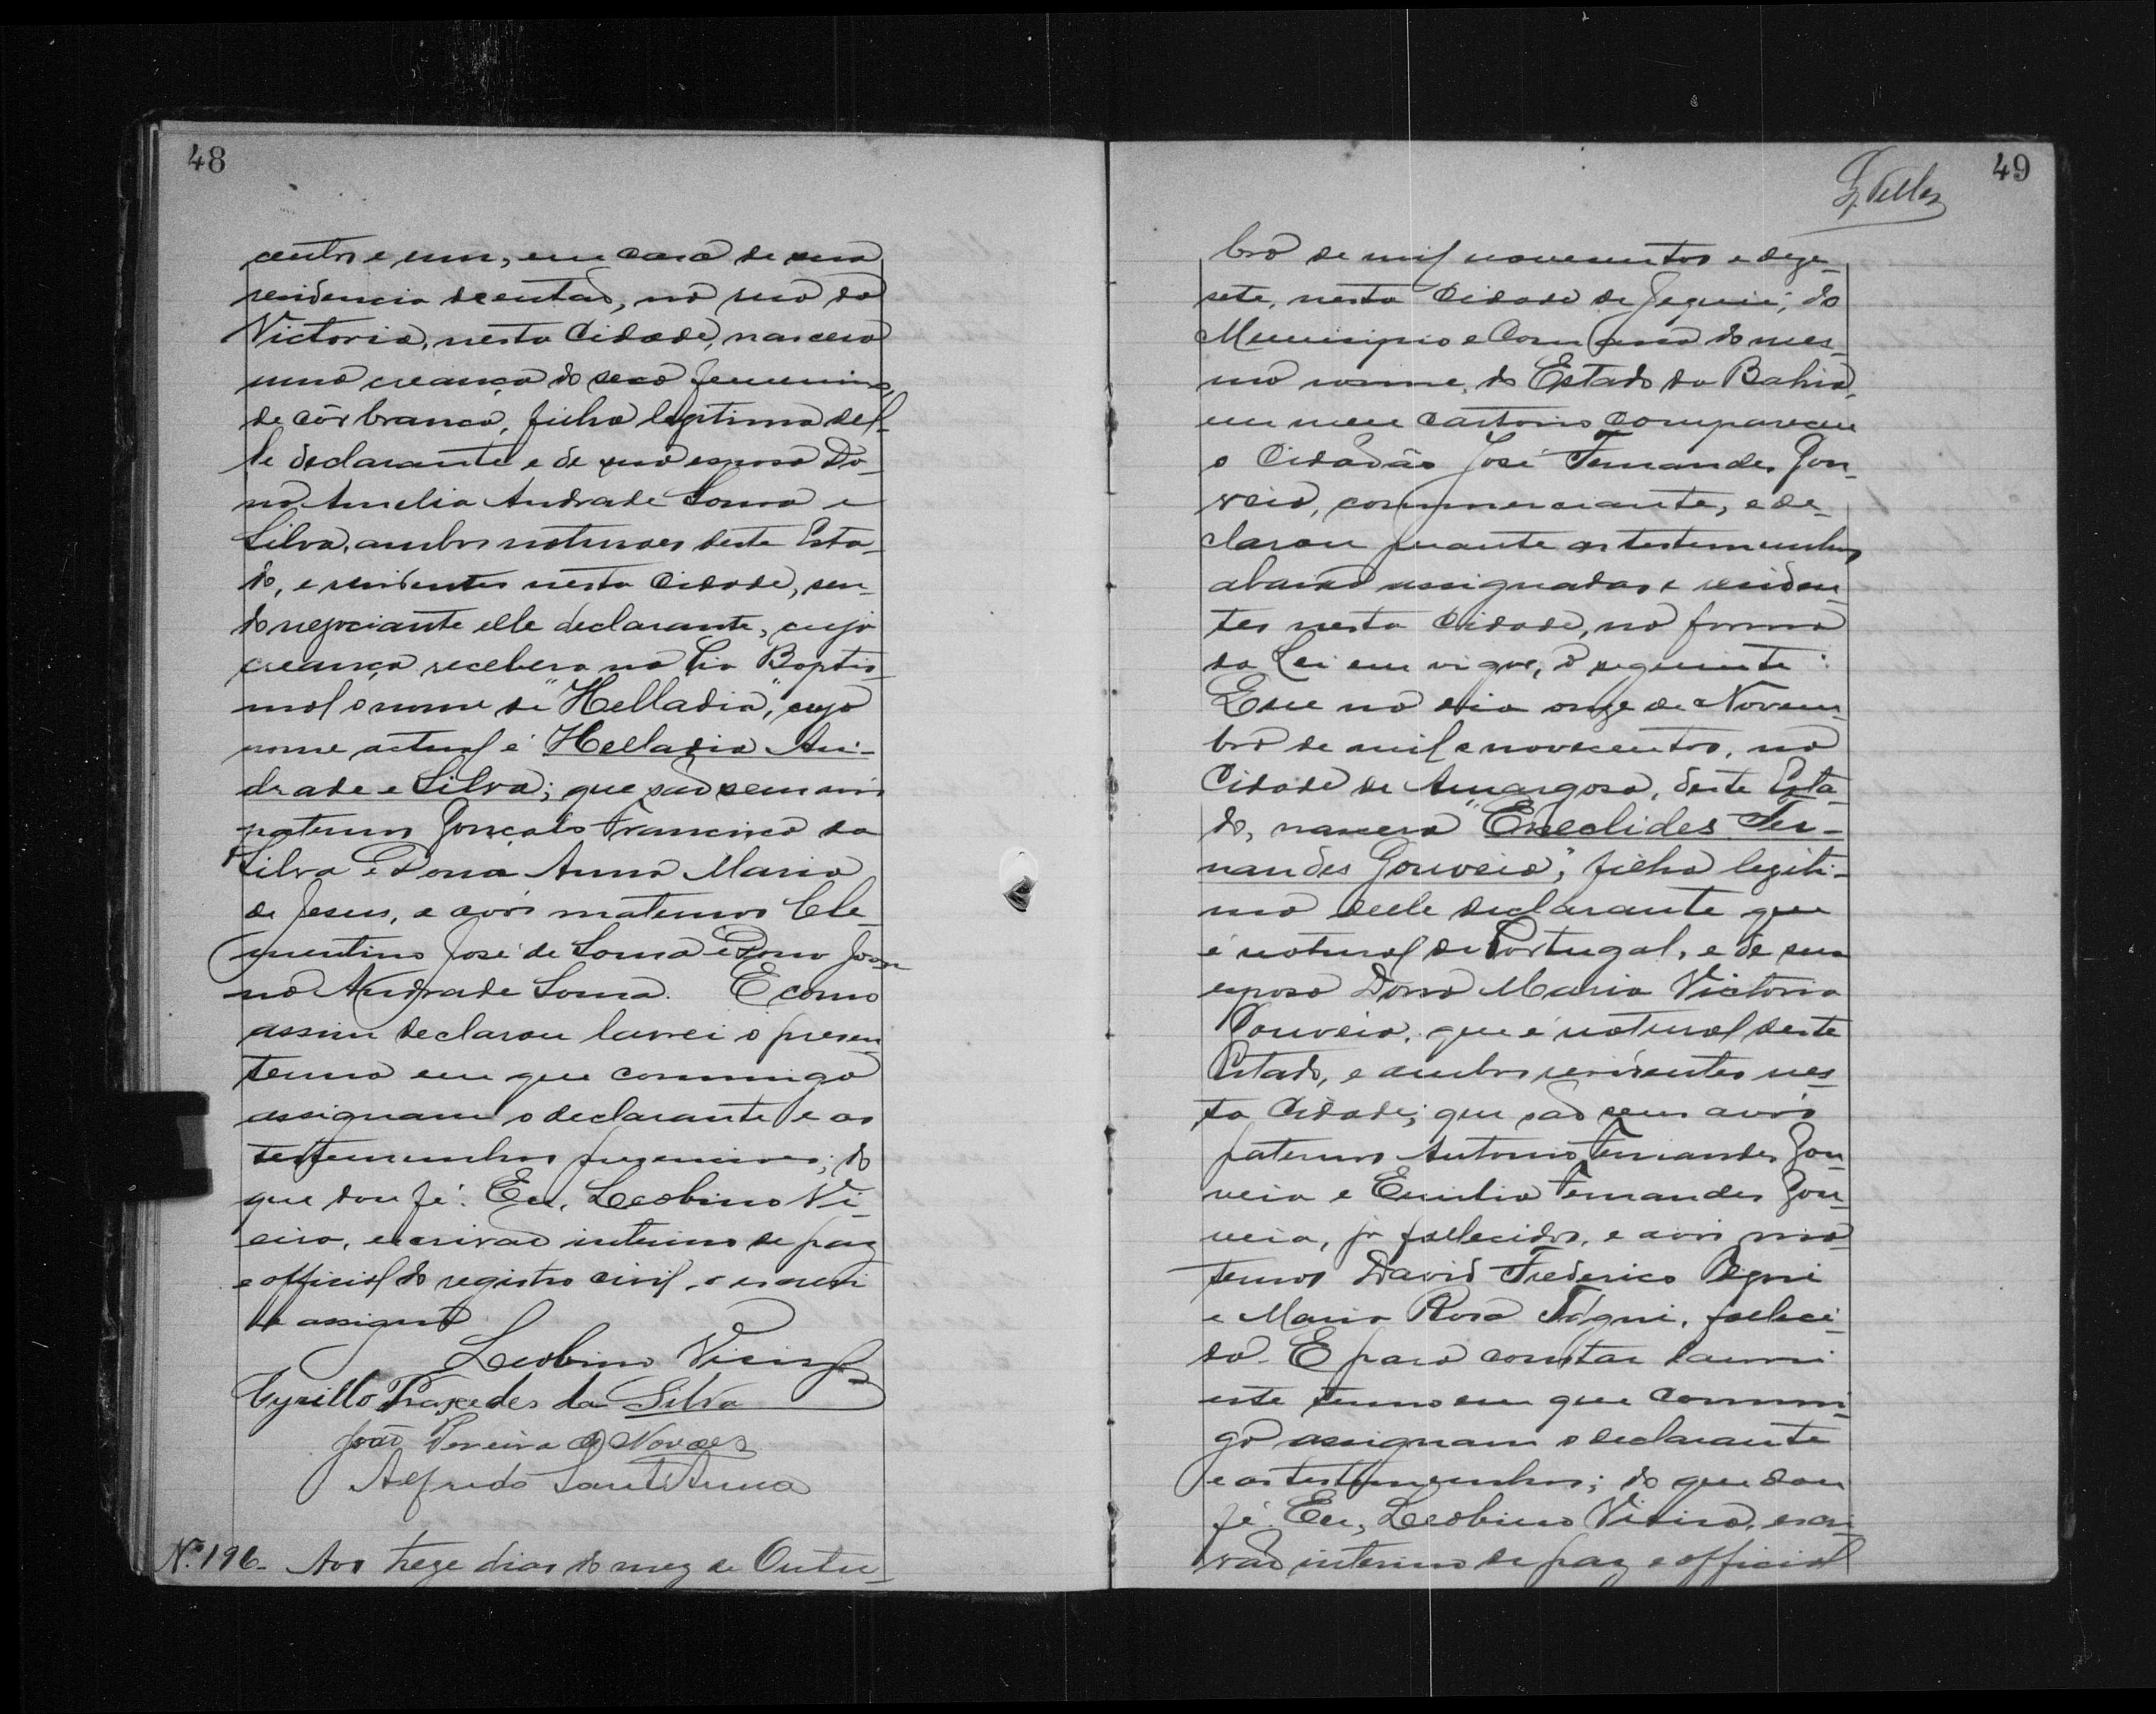 48
centos e um, em casa de sua
residencia de entaõ, na rua da
Victoria, nesta Cidade, nascera
uma creança do sexo feminino,
de côr branca, filha legitima del-
le declarante e de sua esposa Do-
na Amelia Andrade Sousa e
Silva, ambos naturaes deste Esta-
do, e residentes nesta Cidade, sen-
do negociante elle declarante, cuja
creança recebera na Pia Baptis-
mal o nome de "Helladia", cujo
nome actual é Helladia An-
drade e Silva; que saõ seus avós
paternos Gonçalo Francisco da
Silva e Dona Anna Maria
de Jesus, e avós maternos Cle-
mentino José de Sousa e Dona Joan-
na Andrade Sousa. E como
assim declarou lavrei o presen
termo em que commigo
assignam o declarante e as
testemunhas ; do
que dou fé. Eu, Leobino Vi-
eira, escrivaõ interino de paz
e official do registro civil, o escrevi
e assigno
Leobino Vieira
Cyrillo Praxedes da Silva
João Pereira de Novaes
Alfredo Sant'Anna
N.º 196. Aos treze dias do mez de Outu-
49
Telles
bro de mil novecentos e deze-
sete, nesta Cidade de Jequié, do
Municipio e Comarca do mes-
mo nome, do Estado da Bahia,
em meu cartorio compareceu
o Cidadão José Fernandes Gou-
veia, commerciante, e de-
clarou perante as testemunhas
abaixo assignadas e residen-
tes nesta Cidade, na forma
da Lei em vigor, o seguinte:
Que no dia onze de Novem-
bro de mil e novecentos, na
Cidade de Amargosa, deste Esta-
do, nascera "Euclides Fer-
nandes Gouveia", filho legiti-
mo delle declarante que
é natural de Portugal, e de sua
esposa Dona Maria Victoria
Gouveia, que é natural deste
Estado, e ambos residentes nes-
ta Cidade; que saõ seus avós
paternos Antonio Fernandes Gou-
veia e Emilia Fernandes Gou-
veia, já fallecidos, e avós ma-
ternos David Frederico
e Maria Rosa Tógni, falleci-
da. E para constar lavrei
este termo em que commi-
go assignam o declarante
e as testemunhas; do que dou
fé. Eu, Leobino Vieira, escri-
vaõ interino de paz e official